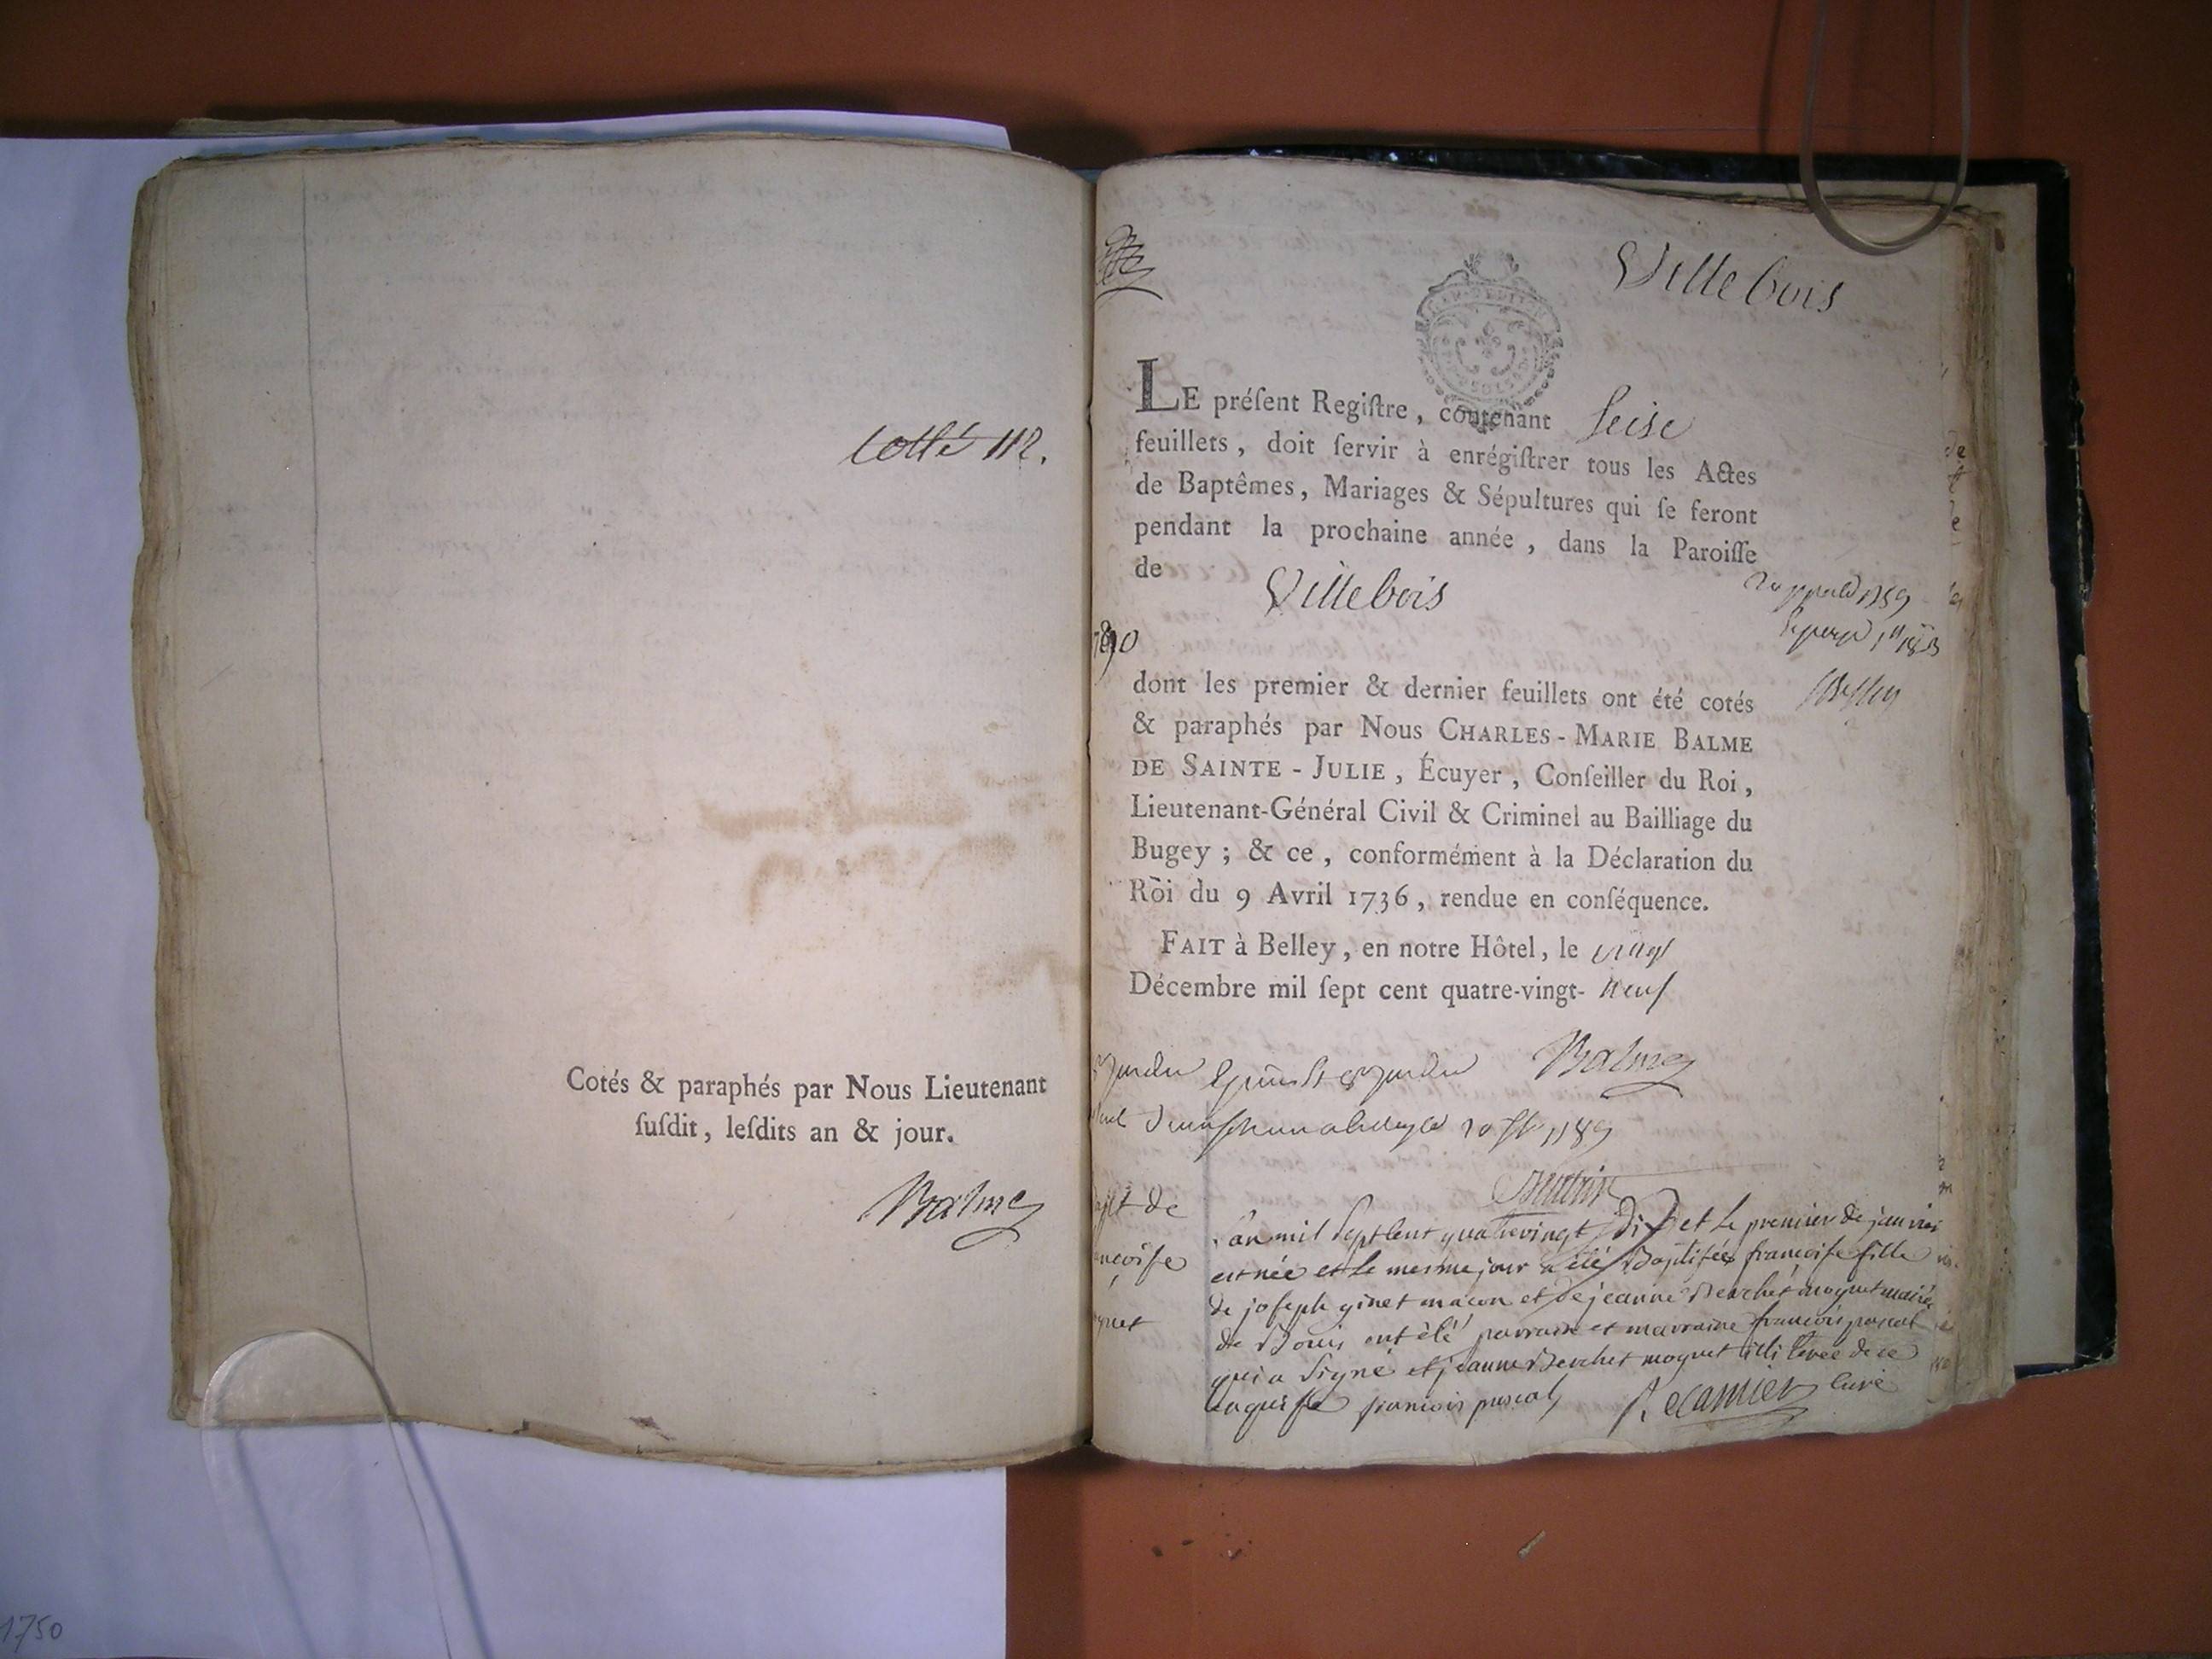 Cotté 112.
Cotés & paraphés par Nous Lieutenant
ſuſdit, leſdits an & jour.
Balme
Villebois
LE préſent Regiſtre, contenant seise
feuillets, doit ſervir à enrégiſtrer tous les Actes
de Baptêmes, Mariages & Sépultures qui ſe feront
pendant la prochaine année, dans la Paroiſſe
de Villebois
1790
dont les premier & dernier feuillets ont été cotés
& paraphés par Nous CHARLES-MARIE BALME
DE SAINTE-JULIE, Écuyer, Conſeiller du Roi,
Lieutenant-Général Civil & Criminel au Bailliage du
Bugey; & ce, conformément à la Déclaration du
Roi du 9 Avril 1736, rendue en conſéquence.
FAIT à Belley, en notre Hôtel, le vingt
Décembre mil ſept cent quatre-vingt- neuf
Balme
de
ginet
L'an mil sept cent quatrevingt dix et le premier de janvier
est née et le mesme jour a été Baptisée françoise fille
de joseph ginet maçon et de jeanne Berchet moquet mariés
de Bouis ont été parrain et marraine françois pascal
qui a signé et jeanne Berchet moquet illiterée de ce
requise françois pascal Récamier curé
1750